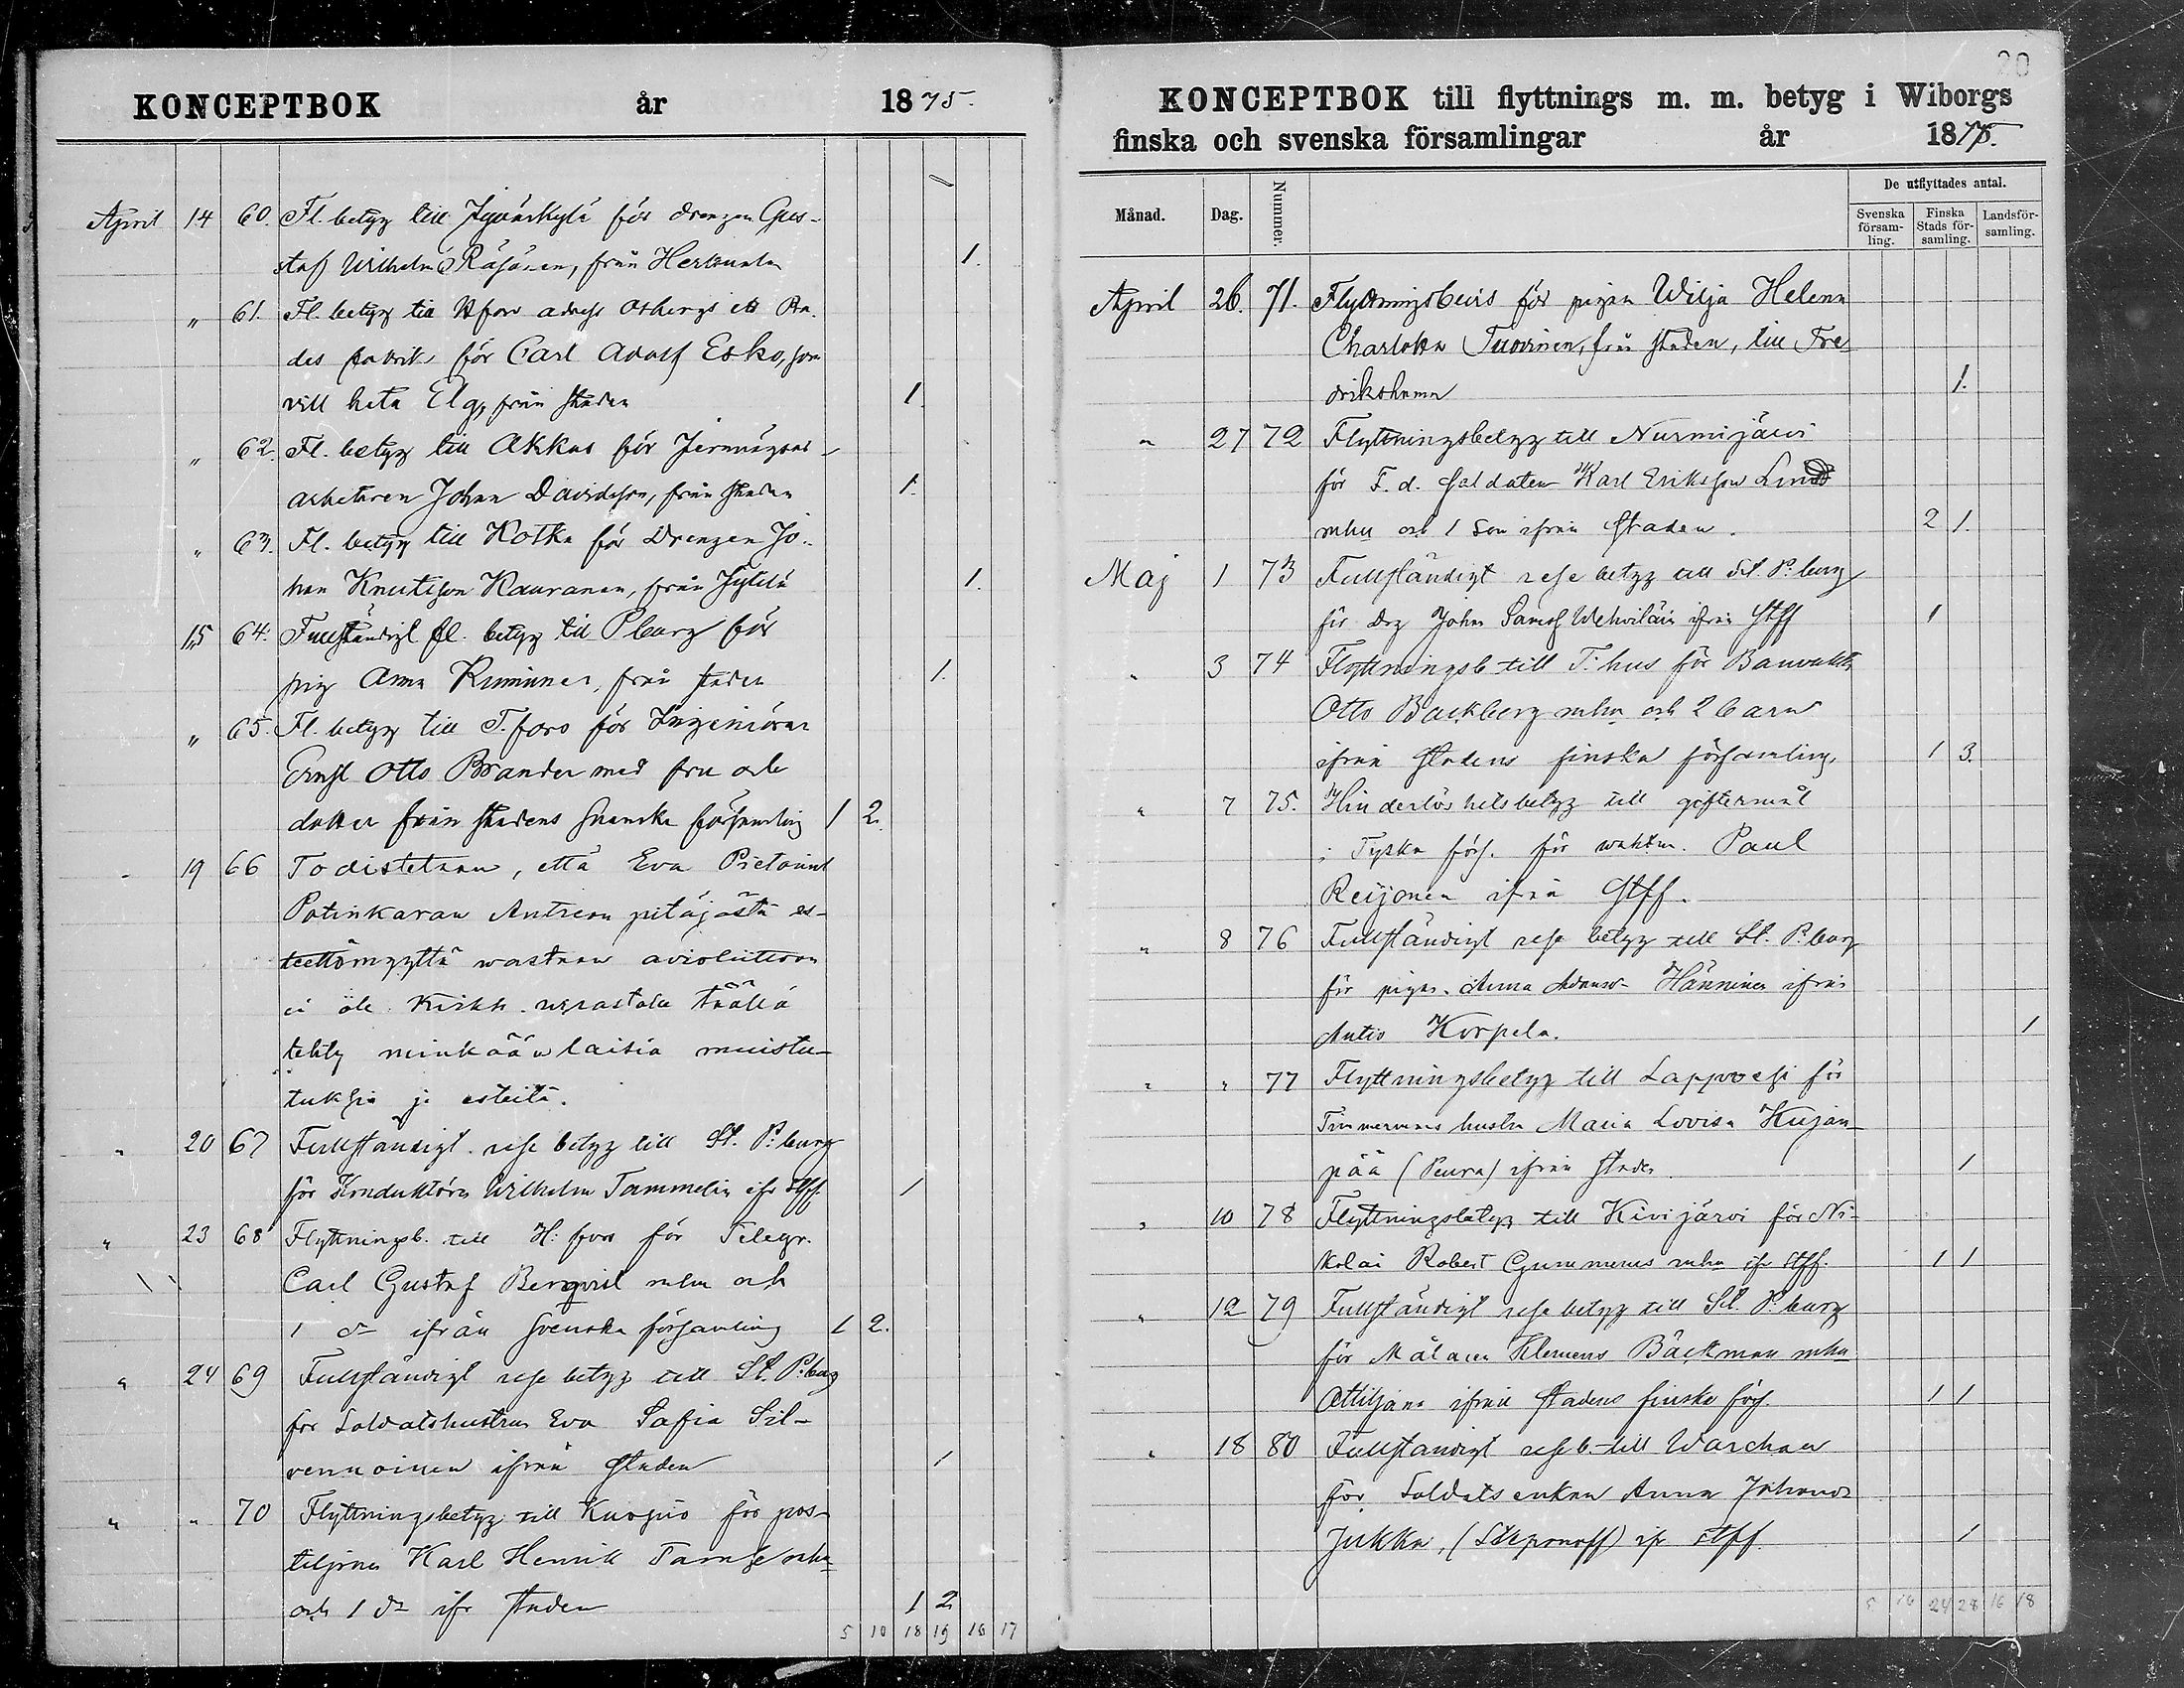 KONCEPTBOK år 1875.
April 14 60. Fl. betyg till Jyväskylä för drengen Gus-
staf Wilhelm Räsänen, från Herttuala 1.
„ 61. Fl. betyg till Hfors adress Osbergs et Ba-
des fabrik för Carl Adolf Esko, som
vill heta Elg, från staden 1.
„ 62. Fl. betyg till Akkas för Jernvägs-
arbetaren Johan Davidsson, från staden 1.
„ 63. Fl. betyg till Kotka för Drengen Jo-
han Knutsson Kauranen, från 1.
15 64. Fullständigt fl. betyg till Pburg för
pig Anna Rimminen, från staden 1.
„ 65. Fl. betyg till T.fors för Ingeniören
Ernst Otto Brander med fru och
dotter från stadens Svenska församling 1 2.
19 66 Todistetaan, että Eva Pietarint
Potinkaran Antrean pitäjästä es-
teettömyyttä wastaan avioliittoon
ei ole Kirkk. wirastolla täällä
tehty minkäänlaisia muistu-
tuksia ja esteitä.
„ 20 67 Fullständigt rese betyg till St. P:burg
för Konduktören Wilhelm Tammelin ifr. Stff. 1
„ 23 68 Flyttningsb. till H:fors för Telegr.
Carl Gustaf Bergqvist mhu och
1 dr ifrån Svenska församling 1 2.
„ 24 69 Fullständigt rese betyg till St. P:burg
for Soldatshustrun Eva Sofia Sil-
vennoinen ifrån Staden 1
„ „ 70 Flyttningsbetyg till Kuopio för pos-
tiljonen Karl Henrik mhu
och 1 dr ifr staden 1 2
5 10 18 19 16 17
20
KONCEPTBOK till flyttnings m. m. betyg i Wiborgs
finska och svenska församlingar år 1875.
Månad. Dag. Nummer. De utflyttades antal.
Svenska försam-ling. Finska Stads för-samling. Landsför-samling.
April 26. 71. Flyttningsbevis för pigan Wilja Helena
Charlotta Tuovinen, från staden, till Fre-
drikshamn 1.
„ 27 72 Flyttningsbetyg till Nurmijärvi
för F. d. Soldaten Karl Eriksson Lind
mhu och 1 son ifrån Staden. 2 1.
Maj 1 73 Fullständigt rese betyg till St. P:burg
för drg Johan Samuel Wehviläin ifrån Stff 1
„ 3 74 Flyttningsb till T:hus för Banvakten
Otto Backberg mhu och 2 barn
ifrån Stadens finska församling. 1 3.
„ 7 75. Hinderlöshetsbetyg till giftermål
i Tyska förs. för waktm. Paul
Reijonen ifrån Stff.
„ 8 76 Fullständigt rese betyg till St. P:burg
för pigan Anna Adamsdr Hänninen ifrån
Autio Korpela. 1
„ „ 77 Flyttningsbetyg till Lappvesi för
Timmermans hustru Maria Lovisa Kujan-
pää (Peura) ifrån staden. 1
„ 10 78 Flyttningsbetyg till Kivijärvi för Ni-
kolai Robert Gummerus mhu ifr Stff. 1 1
„ 12 79 Fullständigt rese betyg till St. P:burg
för Målaren Klemens Bäckman mhu
ifrån Stadens finska förs. 1 1
„ 18 80 Fullständigt rese b. till Warschau
för Soldats enkan Anna Johansdr
Jukka, (Stepanoff) ifr Stff. 1
5 10 24 28 16 18